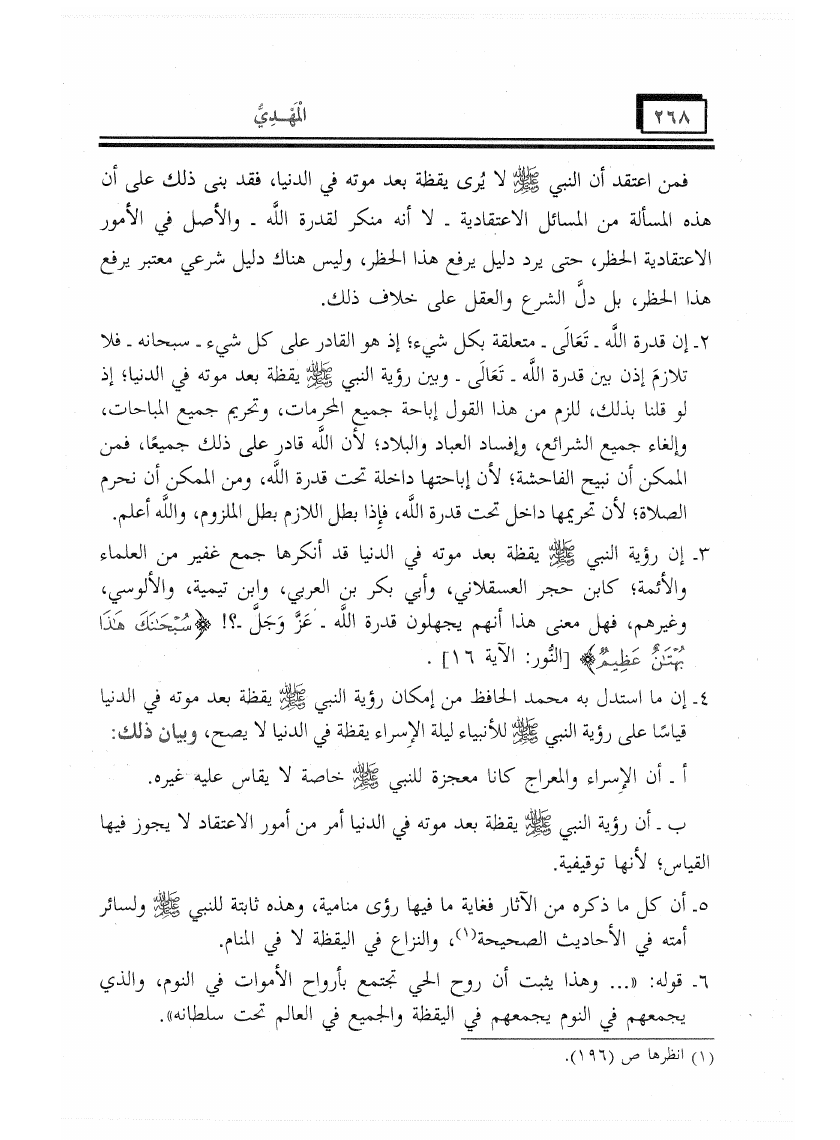 ٢٦٨
الْمَهْـدِيُّ
فمن اعتقد أن النبي ﷺ لا يُرى يقظة بعد موته في الدنيا، فقد بنى ذلك على أن
هذه المسألة من المسائل الاعتقادية ـ لا أنه منكر لقدرة اللَّه ـ والأصل في الأمور
الاعتقادية الحظر، حتى يرد دليل يرفع هذا الحظر، وليس هناك دليل شرعي معتبر يرفع
هذا الحظر، بل دلَّ الشرع والعقل على خلاف ذلك.
٢ـ إن قدرة اللَّه ـ تَعَالَى ـ متعلقة بكل شيء؛ إذ هو القادر على كل شيء ـ سبحانه ـ فلا
تلازمَ إذن بين قدرة اللَّه ـ تَعَالَى ـ وبين رؤية النبي ﷺ يقظة بعد موته في الدنيا؛ إذ
لو قلنا بذلك، للزم من هذا القول إباحة جميع المحرمات، وتحريم جميع المباحات،
وإلغاء جميع الشرائع، وإفساد العباد والبلاد؛ لأن اللَّه قادر على ذلك جميعًا، فمن
الممكن أن نبيح الفاحشة؛ لأن إباحتها داخلة تحت قدرة اللَّه، ومن الممكن أن نحرم
الصلاة؛ لأن تحريمها داخل تحت قدرة اللَّه، فإذا بطل اللازم بطل الملزوم، واللَّه أعلم.
٣ـ إن رؤية النبي ﷺ يقظة بعد موته في الدنيا قد أنكرها جمع غفير من العلماء
والأئمة؛ كابن حجر العسقلاني، وأبي بكر بن العربي، وابن تيمية، والألوسي،
وغيرهم، فهل معنى هذا أنهم يجهلون قدرة اللَّه ـ عَزَّ وَجَلَّ ـ؟! ﴿سُبْحَٰنَكَ هَٰذَا
بُهْتَٰنٌ عَظِيمٌ﴾ [النُّور: الآية ١٦] .
٤ـ إن ما استدل به محمد الحافظ من إمكان رؤية النبي ﷺ يقظة بعد موته في الدنيا
قياسًا على رؤية النبي ﷺ للأنبياء ليلة الإسراء يقظة في الدنيا لا يصح، وبيان ذلك:
أ ـ أن الإسراء والمعراج كانا معجزة للنبي ﷺ خاصة لا يقاس عليه غيره.
ب ـ أن رؤية النبي ﷺ يقظة بعد موته في الدنيا أمر من أمور الاعتقاد لا يجوز فيها
القياس؛ لأنها توقيفية.
٥ـ أن كل ما ذكره من الآثار فغاية ما فيها رؤى منامية، وهذه ثابتة للنبي ﷺ ولسائر
أمته في الأحاديث الصحيحة(١)، والنزاع في اليقظة لا في المنام.
٦ـ قوله: «... وهذا يثبت أن روح الحي تجتمع بأرواح الأموات في النوم، والذي
يجمعهم في النوم يجمعهم في اليقظة والجميع في العالم تحت سلطانه».
(١) انظرها ص (١٩٦).